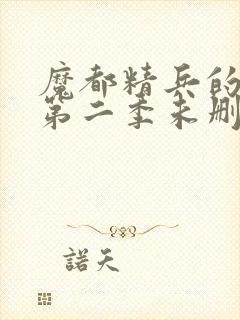 魔都精兵的
第二季未删
諾天